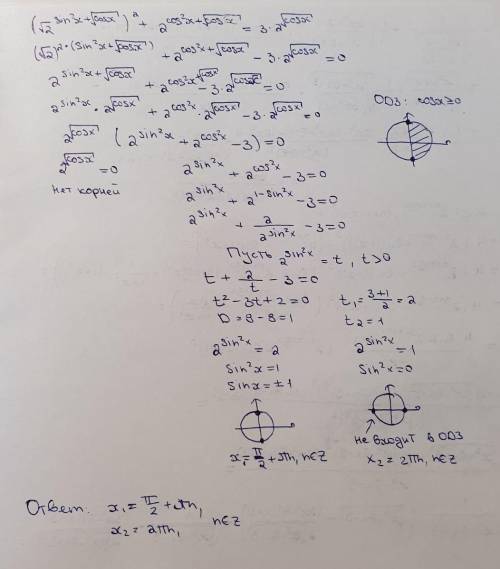 (√2^(sin²x+√cosx))² + 2^(cos²x+√cosx) = 3·2^√cosx
(√2)^(2·(sin²x+√cosx)) + 2^(cos²x+√cosx) − 3·2^√cosx = 0
2^(sin²x+√cosx) + 2^(cos²x√cosx) − 3·2^√cosx = 0
2^(sin²x)·2^√cosx + 2^(cos²x)·2^√cosx − 3·2^√cosx = 0
ОДЗ: cosx≥0
2^√cosx (2^(sin²x) + 2^(cos²x) − 3) = 0
2^√cosx = 0
нет корней
2^(sin²x) + 2^(cos²x) − 3 = 0
2^(sin²x) + 2^(1−sin²x) − 3 = 0
2^(sin²x) + 2/2^(sin²x) − 3 = 0
Пусть 2^(sin²x) = t, t>0
t + 2/t − 3 = 0
t² − 3t + 2 = 0
D = 9 − 8 = 1
t₁ = (3+1)/2 = 2
t₂ = 1
2^(sin²x) = 2
sin²x = 1
sinx = ±1
x₁ = π/2 + πn, n∈Z
2^(sin²x) = 1
sin²x = 0
не входит в ОДЗ
x₂ = 2πn, n∈Z
Ответ: x₁ = π/2 + πn,
x₂ = 2πn, n∈Z